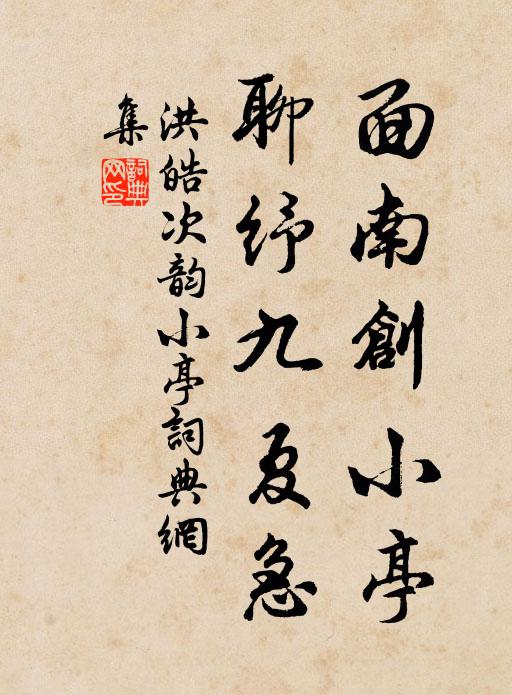 面南創小亭
聊紓九夏急
洪皓次韵小亭詞典網
集
詞典网印